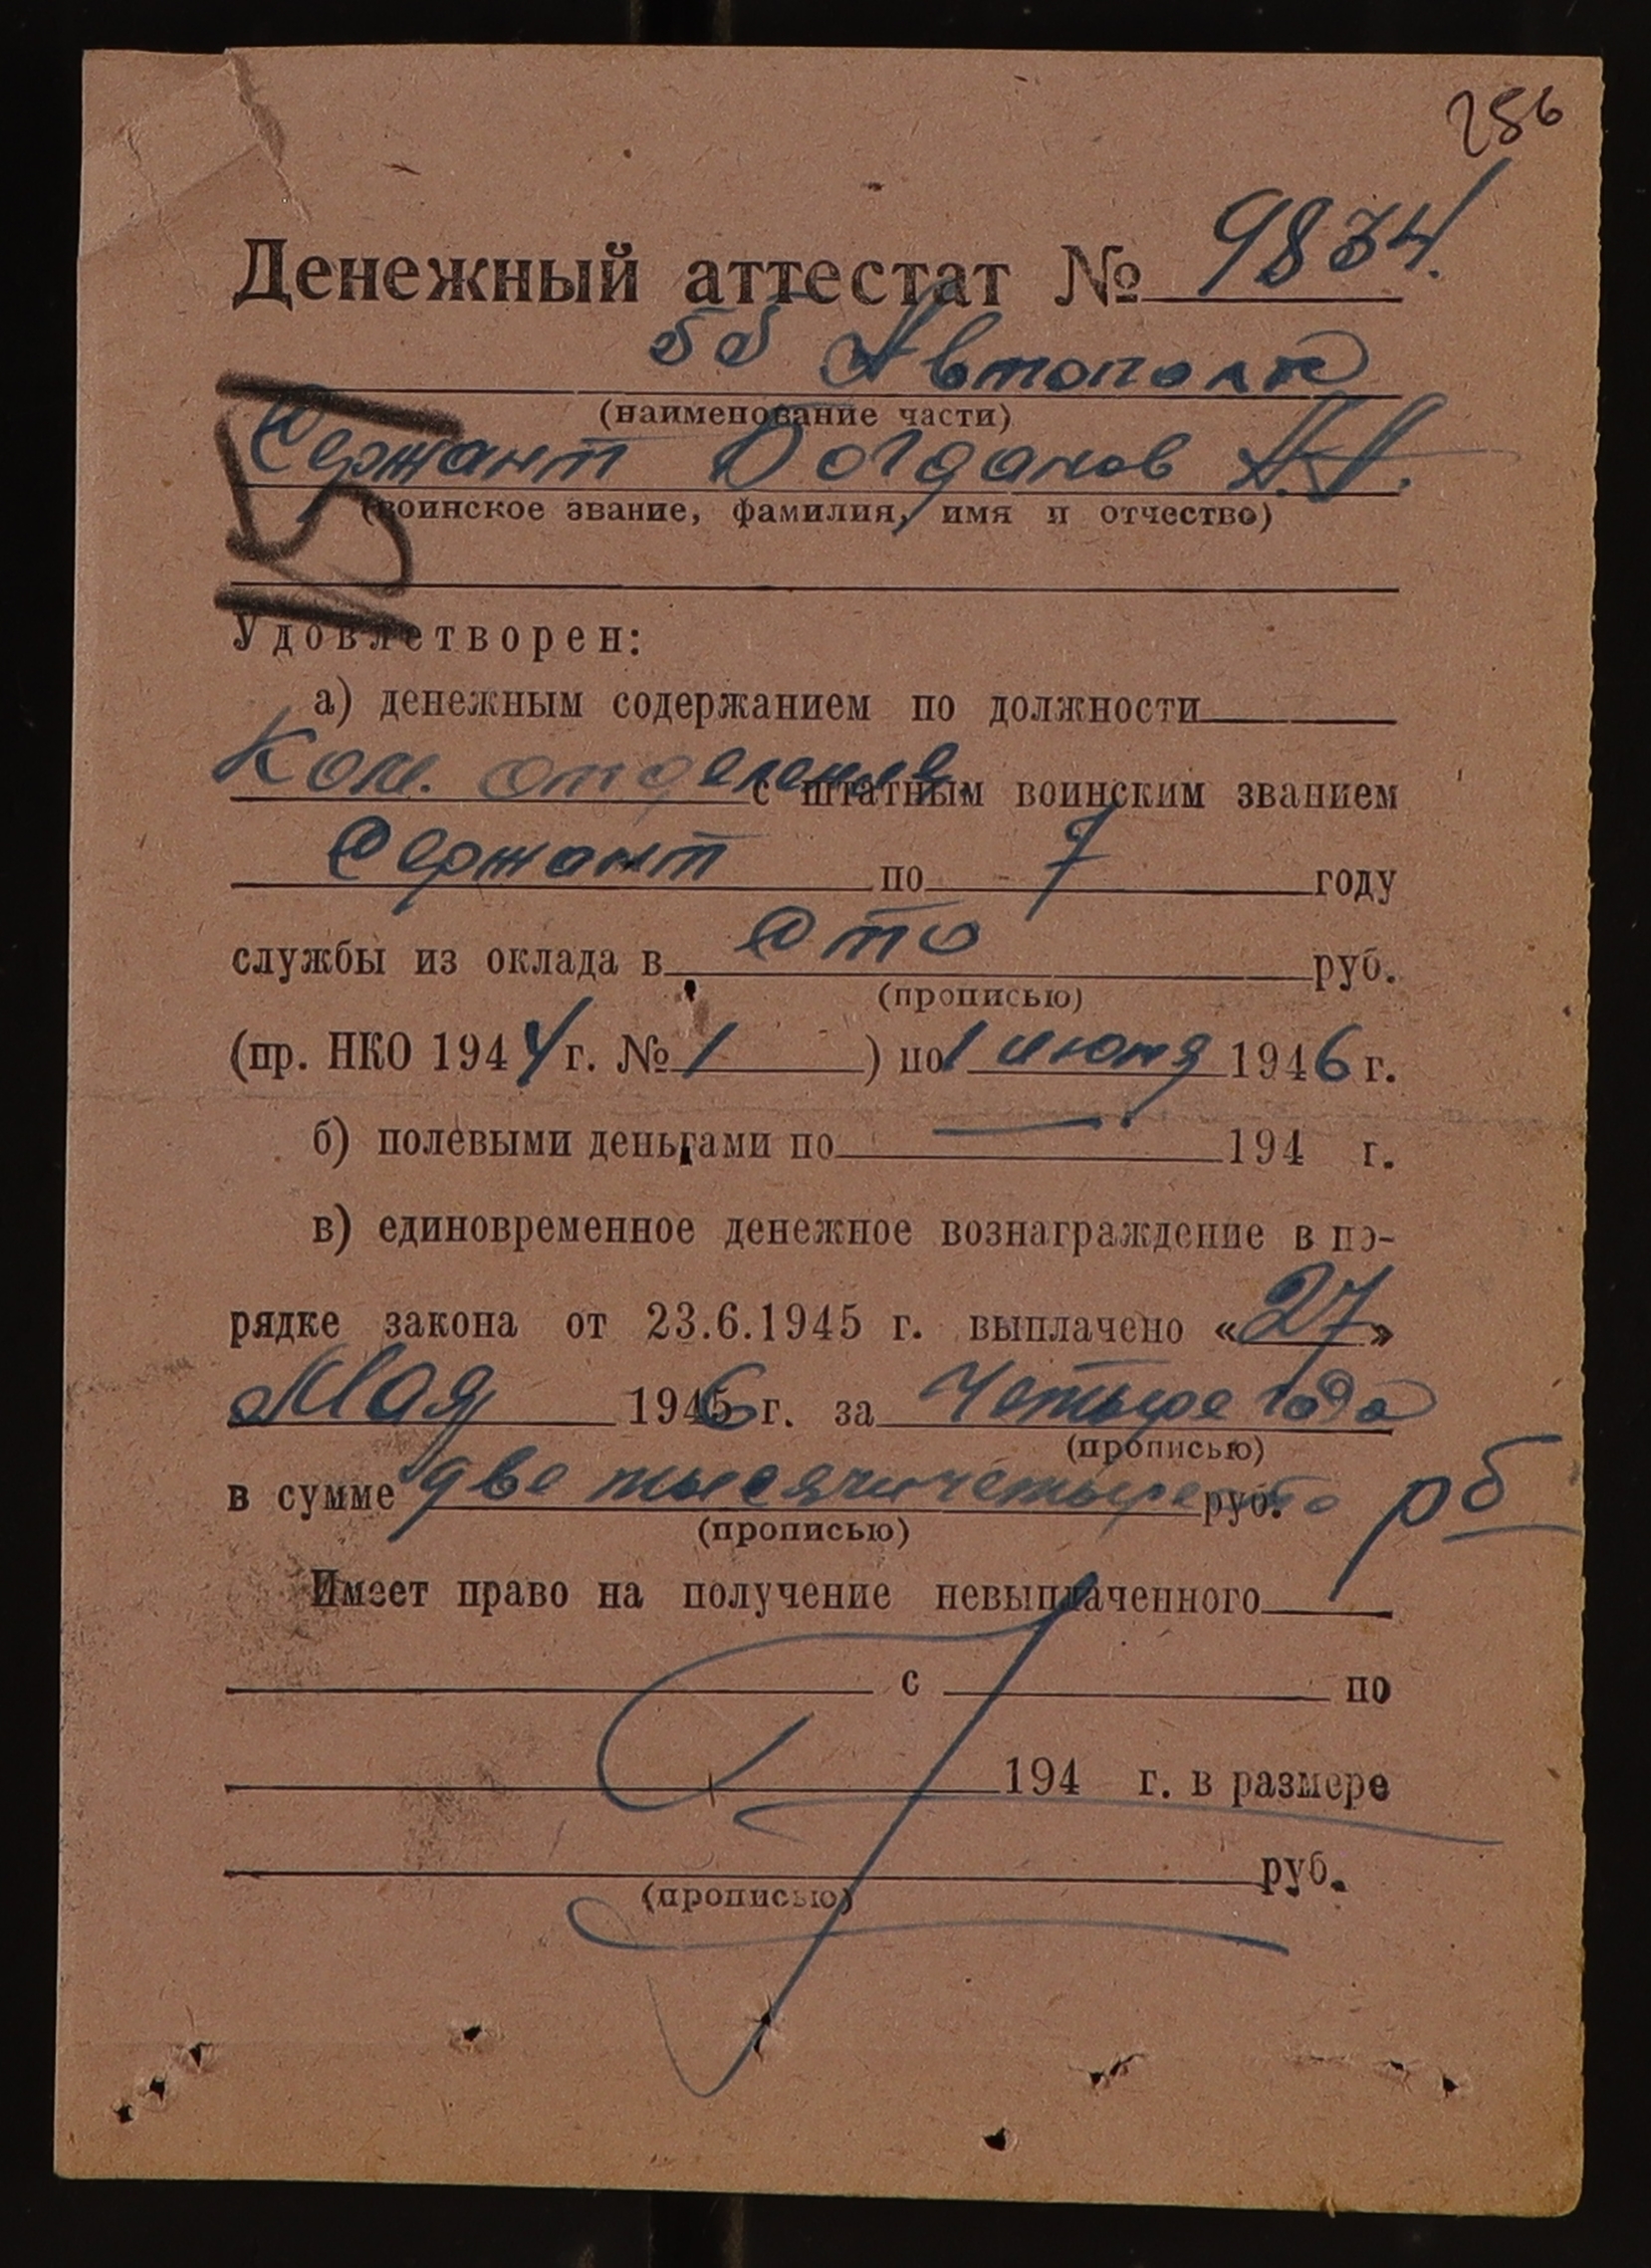 256
Денежный аттестат № 9834.
55 Автополк
(наименование части)
Сержант Богданов А.А.
(воинское звание, фамилия, имя и отчество)
Удовлетворен:
а) денежным содержанием по должности
Ком. отделения с штатным воинским званием
Сержант по 7 году
службы из оклада в Сто руб.
(прописью)
(пр. НКО 1944 г. № 1 ) по 1 июня 1946 г.
б) полевыми деньгами по — 194 г.
в) единовременное денежное вознаграждение в по-
рядке закона от 23.6.1945 г. выплачено «27»
Мая 1946 г. за Четыре года
(прописью)
в сумме две тысячи четыреста руб. рб
(прописью)
Имеет право на получение невыплаченного
с по
194 г. в размере
руб.
(прописью)